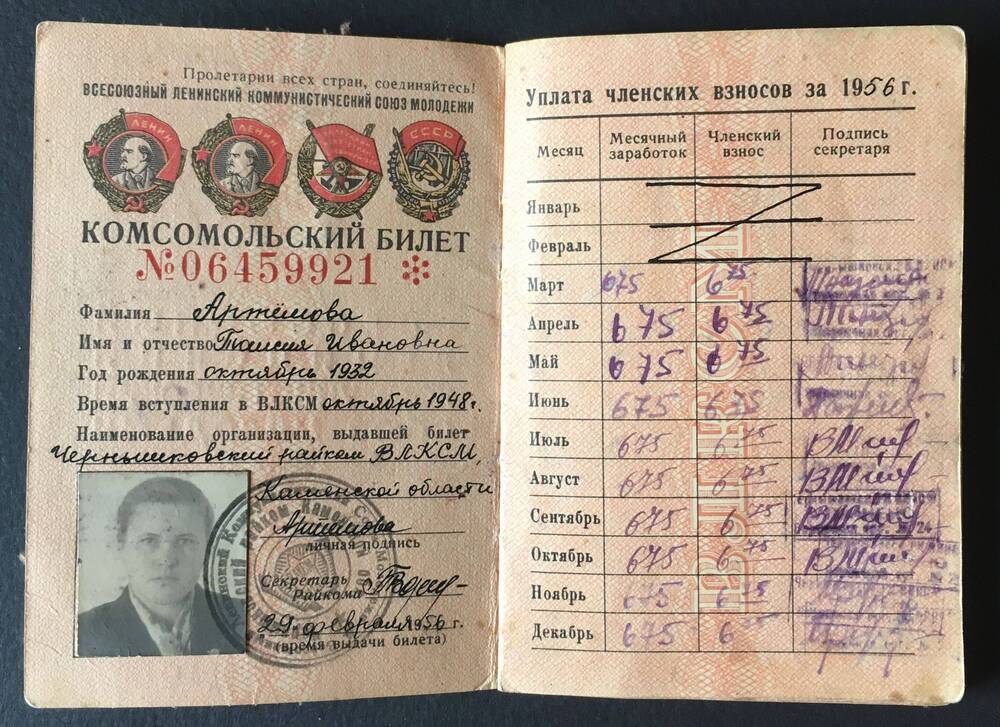 Пролетарии всех стран, соединяйтесь!
ВСЕСОЮЗНЫЙ ЛЕНИНСКИЙ КОММУНИСТИЧЕСКИЙ СОЮЗ МОЛОДЕЖИ
ЛЕНИН ЛЕНИН СССР
КОМСОМОЛЬСКИЙ БИЛЕТ
№06459921
Фамилия Артёмова
Имя и отчество Таисия Ивановна
Год рождения октябрь 1932
Время вступления в ВЛКСМ октябрь 1948 г.
Наименование организации, выдавшей билет
Чернышковский райком ВЛКСМ,
Каменской области
Артёмова
личная подпись
Секретарь
Райкома
29 февраля 1956 г.
(время выдачи билета)
Уплата членских взносов за 1956 г.
Месяц Месячный заработок Членский взнос Подпись секретаря
Январь
Февраль
Март 675 6 75
Апрель 675 6 75
Май 675 6 75
Июнь 675 6 75
Июль 675 6 75
Август 675 6 75
Сентябрь 675 6 75
Октябрь 675 6 75
Ноябрь 675 6 75
Декабрь 675 6 75
ВЛКСМ